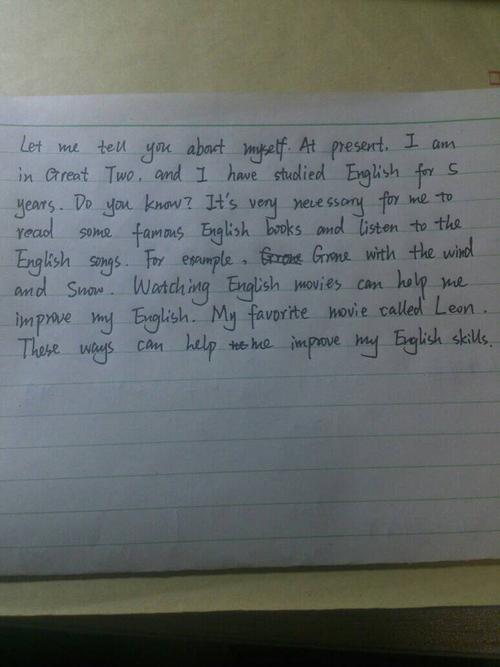 Let me tell you about myself. At present, I am
in Great Two, and I have studied English for 5
years. Do you know? It's very necessary for me to
read some famous English books and listen to the
English songs. For example, Grone Grone with the wind
and Snow. Watching English movies can help me
improve my English. My favorite movie called Leon.
These ways can help me improve my English skills.